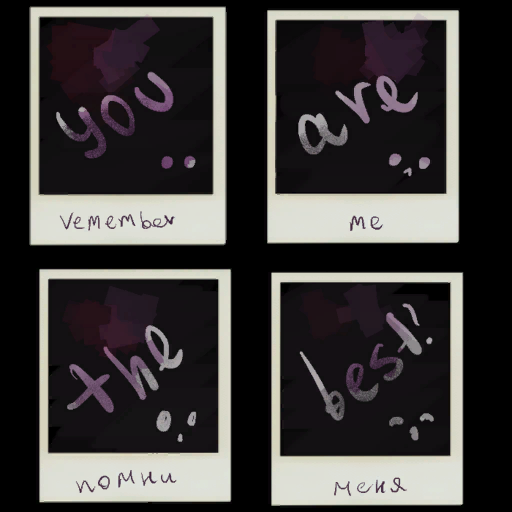 you
remember
are
me
the
помни
best!
меня